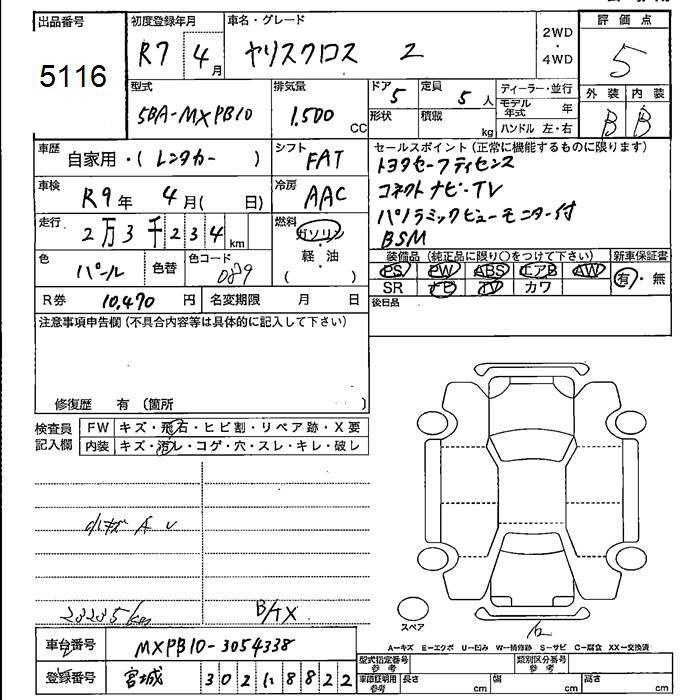 出品番号 5116
初度登録年月 R7 4月
車名・グレード ヤリスクロス Z
2WD・4WD
評価点 5
外装 内装
B B
型式 5BA-MXPB10
排気量 1.500 CC
ドア 5
形状
定員 5人
積載 kg
ディーラー・並行
モデル年式 年
ハンドル 左・右
車歴 自家用・(レンタカー )
シフト FAT
車検 R9年 4月( 日)
冷房 AAC
走行 2万3千234km
燃料 ガソリン・軽・油 ( )
色 パール 色替 色コード 089
R券 10,470円 名変期限 月 日
セールスポイント(正常に機能するものに限ります)
トヨタセーフティセンス
コネクトナビ・TV
パノラミックビューモニター付
BSM
装備品(純正品に限り○をつけて下さい) 新車保証書
PS PW ABS エアB AW 有・無
SR ナビ TV カワ
後日品
注意事項申告欄(不具合内容等は具体的に記入して下さい)
修復歴 有(箇所 )
検査員記入欄
FW キズ・飛石・ヒビ割・リペア跡・X要
内装 キズ・汚レ・コゲ・穴・スレ・キレ・破レ
小キズ A U
23235km B/TX
スペア
A−キズ E−エクボ U−凹み W−補修跡 S−サビ C−腐食 XX−交換済
車台番号 MXPB10-3054338
型式指定番号 参考 類別区分番号 参考
登録番号 宮城
車庫証明用参考 長さ cm 幅 cm 高さ cm